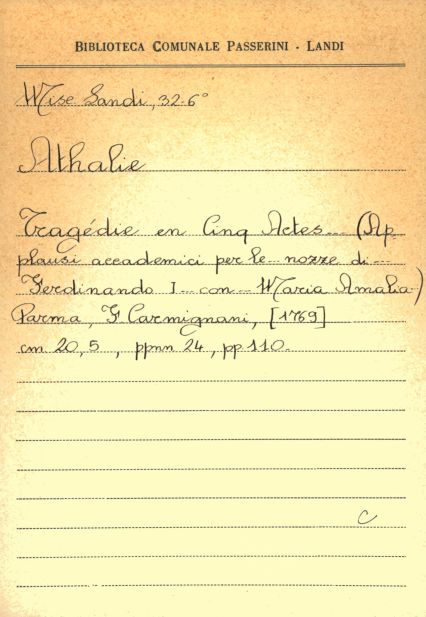 BIBLIOTECA COMUNALE PASSERINI - LANDI
Misc Landi, 32-6°
Athalie
Tragédie en Cinq Actes... (Ap-
plausi accademici per le... nozze di...
Ferdinando I... con... Maria Amalia)
Parma, F. Carmignani, [1769]
cm. 20,5, ppnn 24, pp. 110.
C